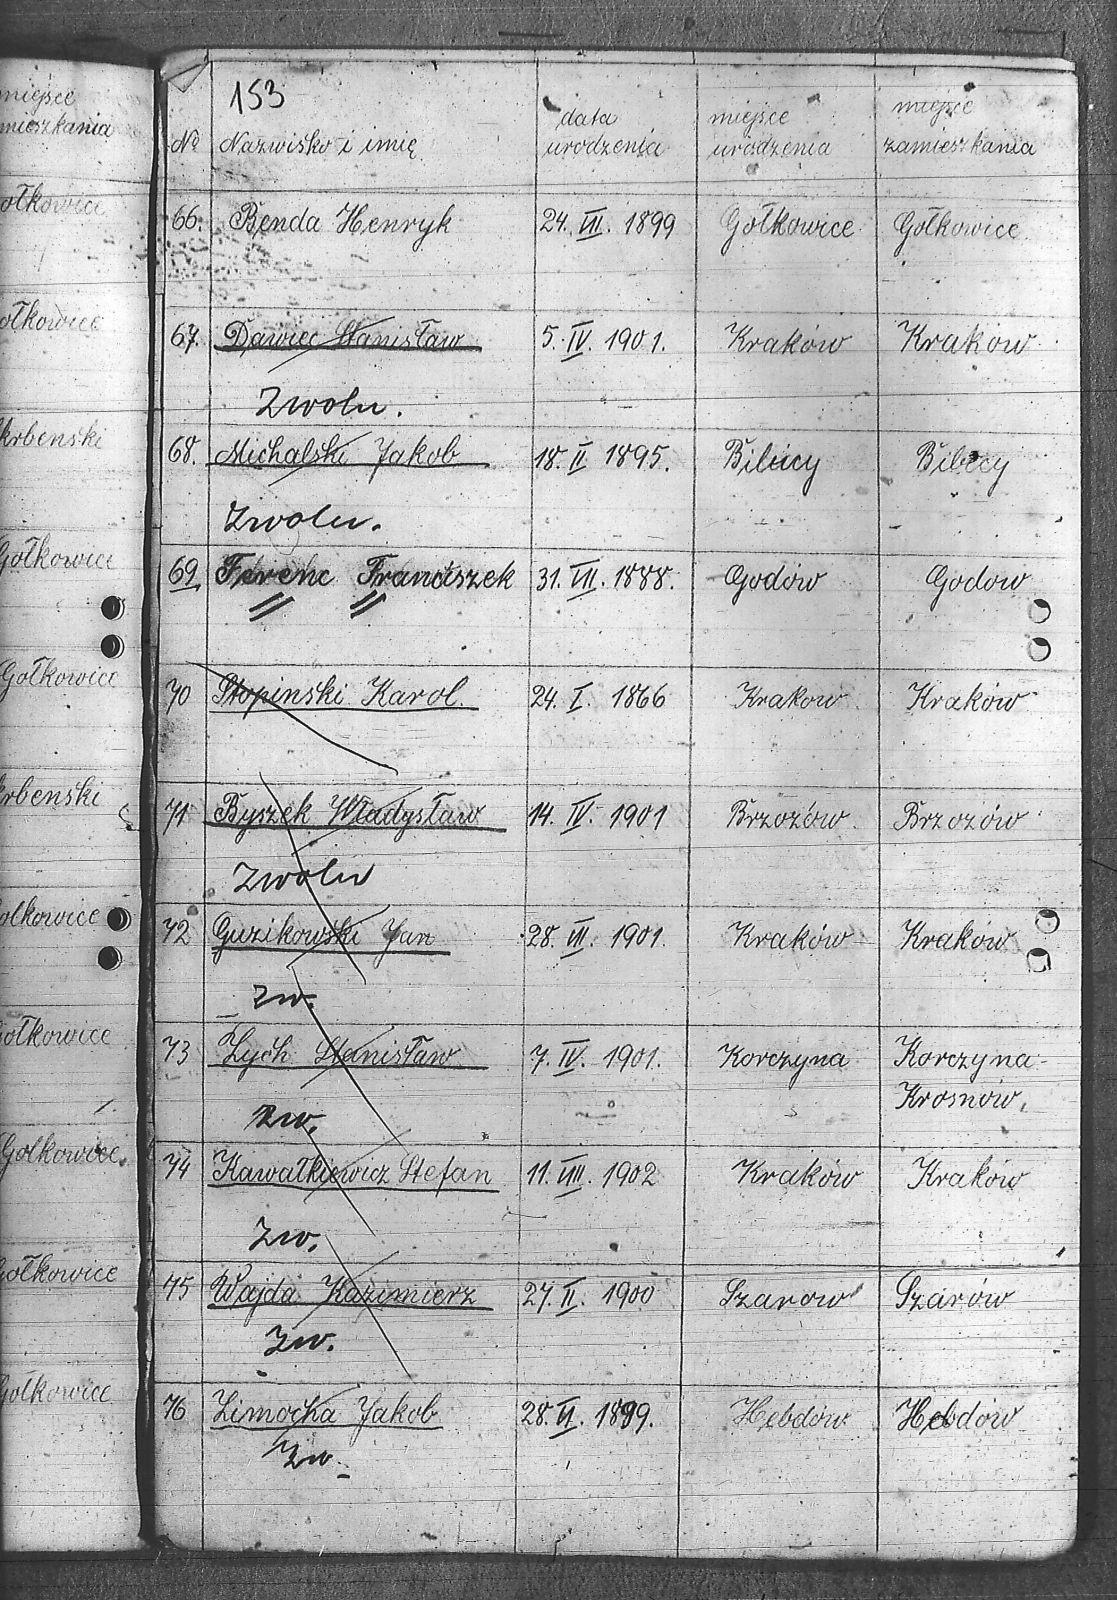 miejsce
mieszkania
ołkowice
ołkowice
krbenski
Gołkowice
Gołkowice
krbenski
olkowice
Gołkowice
Gołkowice
Gołkowice
Gołkowice
153
№ Nazwisko i imię data urodzenia miejsce urodzenia miejsce zamieszkania
66. Benda Henryk 24. VII. 1899 Gołkowice Gołkowice
67. Dawiec Stanisław 5. IV. 1901. Kraków Kraków
Zwoln.
68. Michalski Jakob 18. II 1895. Bibicy Bibicy
Zwoln.
69 Ferenc Franciszek 31. VII. 1888. Godów Godów
70 Stopinski Karol. 24. I. 1866 Krakow Kraków
71 Byszek Władysław 14. IV. 1901 Brzozów Brzozów
Zwoln
72 Guzikowski Jan 28. VII. 1901. Kraków Kraków
Zw.
73 Zych Stanisław 7. IV. 1901. Korczyna Korczyna
Krosnów,
Zw.
74 Kawałkiewicz Stefan 11. VIII. 1902 Kraków Kraków
Zw.
75 Wajda Kazimierz 27. II. 1900 Szarow Szarów
Zw.
76 Zimocha Jakob 28. VI. 1899. Hebdów Hebdow
Zw